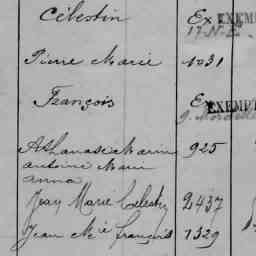 Célestin Ex EXEMP
17. N.E.
Pierre Marie 1031
François Ex EXEMPT
9.
Athanase Marin 925
antoine Marie
anna
Jean Marie Célestin 2437
Jean Mie françois 1329